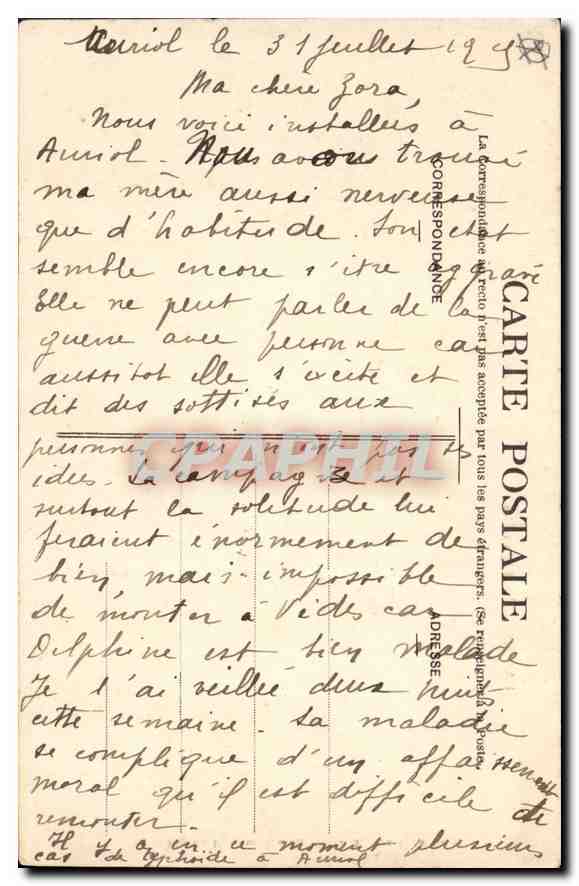 Auriol le 31 juillet 19
Ma chère Zora,
Nous voici installées à
Auriol - Nous avons trouvé
ma mère aussi nerveuse
que d'habitude. Son état
semble encore s'être aggravé
Elle ne peut parler de la
guerre avec personne car
aussitot elle s'excite et
dit des sottises aux
personnes qui n'ont pas ses
idées. La campagne et
surtout la solitude lui
feraient énormement de
bien mais impossible
de monter à Vèdes car
Delphine est bien malade
Je l'ai veillée deux nuits
cette semaine. La maladie
se complique d'un affaissement
moral qu'il est difficile de
remonter.
Il y a en ce moment plusieurs
cas de typhoïde à Auriol
CARTE POSTALE
La Correspondance au recto n'est pas acceptée par tous les pays étrangers. (Se renseigner à la Poste.
CORRESPONDANCE
ADRESSE
CPAPHIL